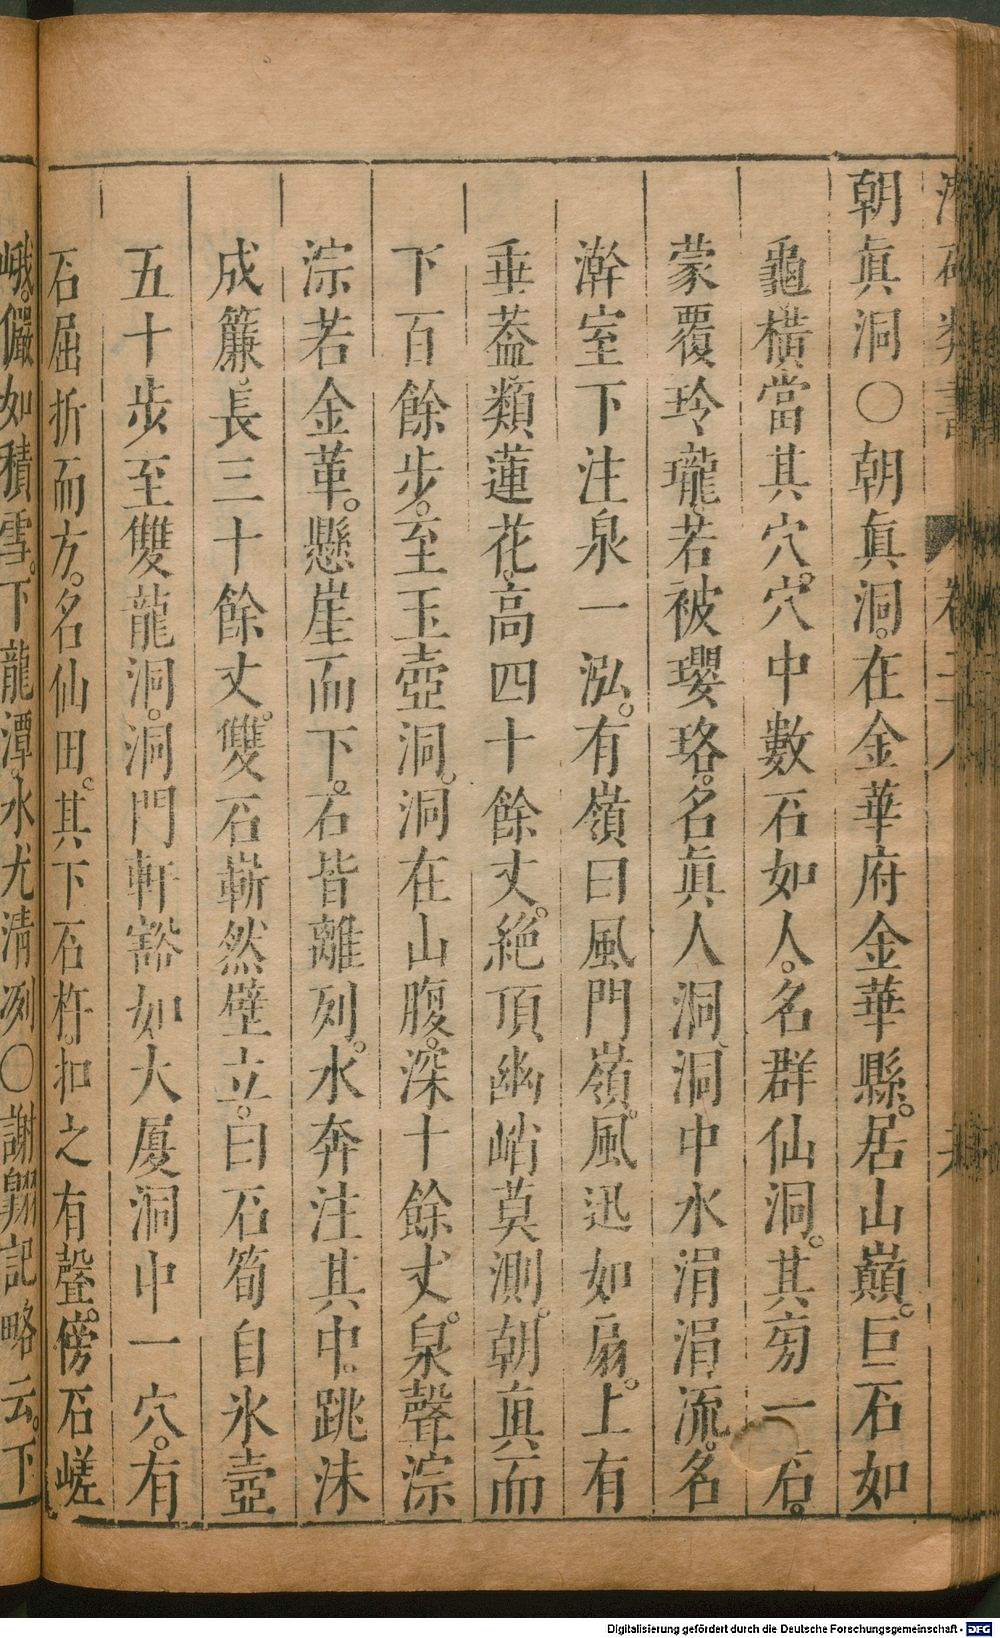 朝眞洞○朝眞洞。在金華府金華縣。居山巔。巨石如
龜橫當其穴。穴中數石如人。名群仙洞。其旁一石。
蒙覆玲瓏。若被瓔珞。名眞人洞。洞中水涓涓流。名
澣室下注泉一泓。有嶺曰風門嶺。風迅如扇。上有
垂葢類蓮花。高四十餘丈。絶頂幽峭莫測。朝眞而
下百餘步。至玉壺洞。洞在山腹。深十餘丈。泉聲淙
淙若金革。懸崖而下。石皆離列。水奔注其中。跳沫
成簾。長三十餘丈。雙石嶄然壁立。曰石筍自氷壺
五十步至雙龍洞。洞門軒豁如大厦洞中一穴。有
石屈折而方。名仙田。其下石杵。扣之有聲。傍石嵯
峨。儼如積雪。下龍潭。水尤清冽○謝翺記略云。下
Digitalisierung gefördert durch die Deutsche Forschungsgemeinschaft - DFG